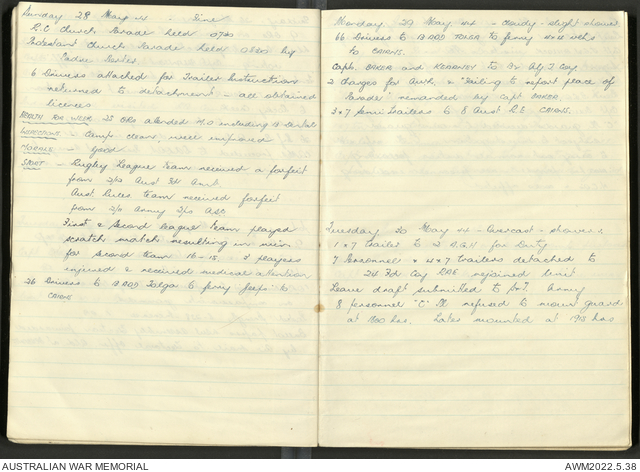 Sunday 28 May 44 - Fine
R.C Church Parade held 0730
Protestant Church Parade held 0830 by
Padre
6 Drivers attached for Trailer Instruction
returned to detachment - all obtained
licences
HEALTH FOR WEEK 25 ORs attended M.O including 13
- Camp clean, well
MORALE - Good
SPORT - Rugby League Team received a forfeit
from 2/2 Aust Fd Amb.
Aust Rules team received forfeit
from 2/2 Army
First & Second League Team played
scratch match resulting in win
for Second team 16-15. 2 players
injured & received medical attention
26 Drivers to 13 AOD Tolga to ferry jeeps to
CAIRNS
Monday 29 May 44 - cloudy - slight shower
66 Drivers to 13 AOD TOLGA to ferry vehs
to CAIRNS.
Capt. BAKER and KEARNEY to
2 charges for Awk. & "Failing to report place of
Parade" remanded by Capt BAKER.
3 x 7 Semi Trailers to 8 Aust CAIRNS.
Tuesday 30 May 44 - Overcast - showers.
1 x 7 trailer to 2 A.G.H for Duty
7 Personnel & 4 x 7 trailers detached to
24 Fd Coy RAE rejoined unit
Leave draft submitted to Army
8 personnel "C" Pl refused to mount guard
at 1700 hrs. Later mounted at 1918 hrs
AUSTRALIAN WAR MEMORIAL
AWM2022.5.38